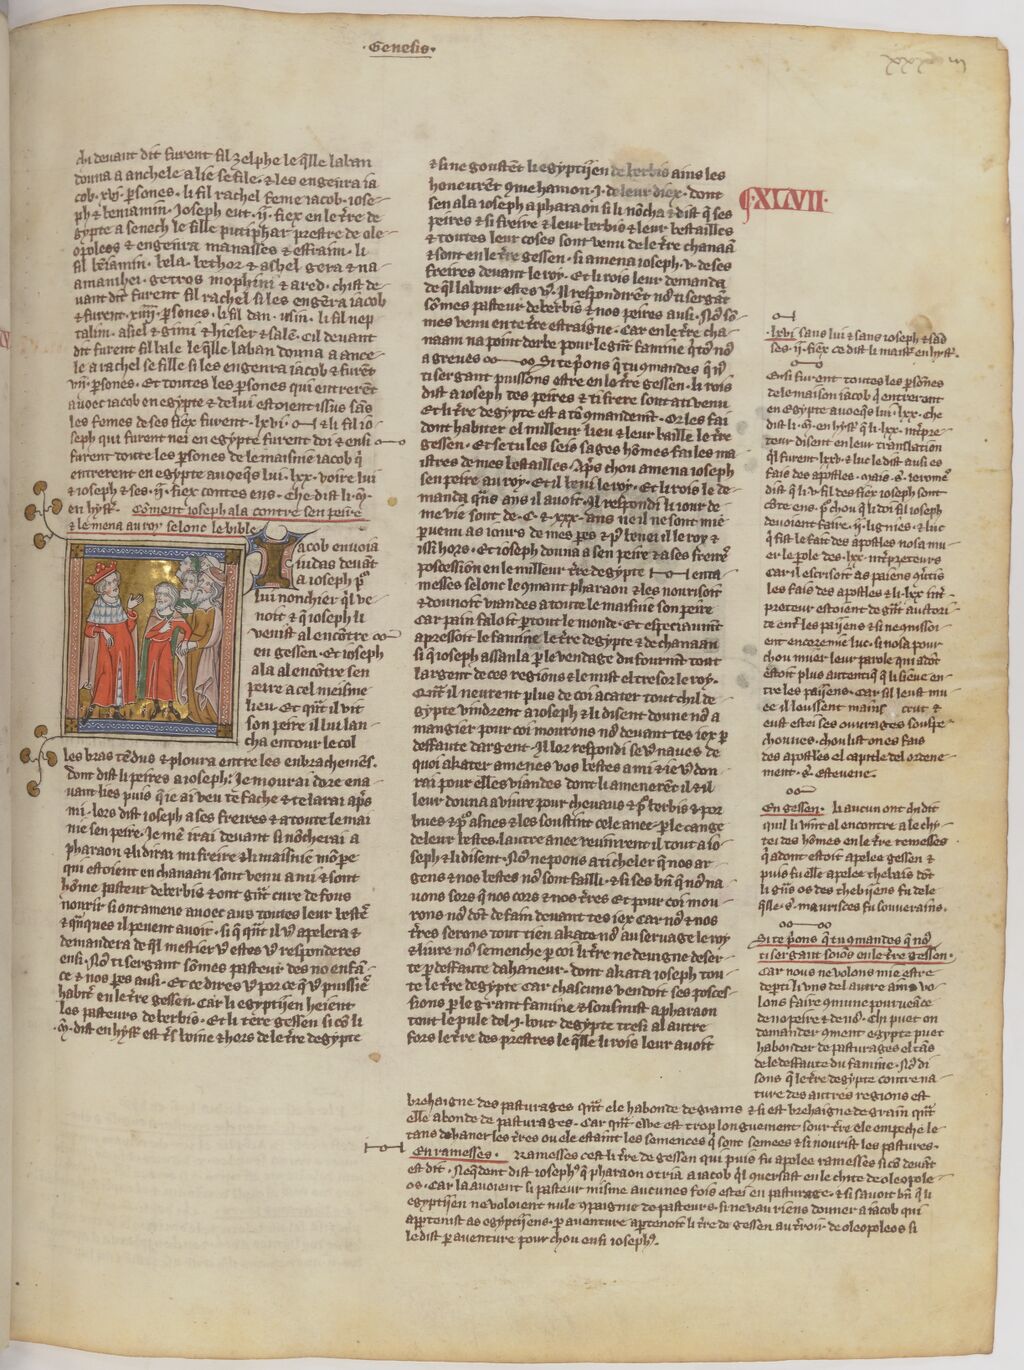 ·Genesis·
chi deuant dit furent fil zelphe le q̄lle laban
donna a anchele a lie se file· & les engenra ia
cob· xvj· ꝑsones· li fil rachel feme iacob· iose-
ph & beniamin· Joseph eut ·ij· fiex en le t̄re de
gypte a senech le fille putiphar prestre de ole
opoleos & engenra manasses & effraim· li
fil beiamin· bela· bethor & asbel gera & na-
amanihei· getros mophini & ared· chist de-
uant dit furent fil rachel si les engēra iacob
& furent ·xiiij· ꝑsones· li fil dan· usin· li fil nep
talim· asiel & gimi & hieser & salē· Cil deuant
dit furent fil bale le q̄lle laban donna a ance-
le a rachel se fille si les engenra iacob & furēt
vij· ꝑsones· Et toutes les ꝑsones qui entrerēt
auoec iacob en egypte & de lui estoient issus sās
les femes de ses fiex furent· lxvi· & li fil io-
seph qui furent nei en egypte furent doi & ensi
furent toute les ꝑsones de le maisnie iacob q̄
entrerent en egypte auoeques lui· lxx· voire lui
& ioseph & ses ·ij· fiex contes ens· Che dist li ·m̄·
en hyst᷒· Cōment ioseph ala contre sen peire
& le mena au roy selonc le bible·
Jacob enuoia
iudas deuāt
a ioseph pᵒ
lui nonchier q̄l ve
noit & q̄ ioseph li
venist al encōtre
en gessen· Et ioseph
ala al encōtre sen
peire a cel meisme
lieu· Et qn̄t il vit
son peire il lui lan-
cha entour le col
les bras tēdus & ploura entre les enbrachemēs·
dont dist li peires a ioseph· Je morrai dore ena-
uant lies puis q̄ ie ai veu te fache & te lairai apˢ
mi· lors dist ioseph a ses freires & a toute le mai
nie sen peire· Je m̄e irai deuant si nōcherai a
pharaon & li dirai mi freire & li maisnie mō pe
qui estoient en chanaan sont venu a mi & sont
hōme pasteur de berbis & ont gn̄t cure de fous
norrir si ont amene auoec aus toutes leur bestē
& qn̄ques il peuent auoir· si q̄ qn̄t il vᵒ apelera &
demandera de q̄l mestier vᵒ estes vᵒ responderes
ensi· Nᵒ ti sergant sōmes pasteur des no enfā-
ce & nos ꝑes ausi· Et ce dires vᵒ por ce q̄ vᵒ puissiē
habit᷒ en le t̄re gessen· Car li egyptijen heient
les pasteurs de berbis· Et li t̄ere gessen si cō li
·m̄· dist en hyst᷒ est t̄rs boine & hors de le t̄re degypte
& si ne goustēt li egyptijen de berbis ains les
honeurēt 9me hamon ·j· de leur diex· dont
sen ala ioseph a pharaon si li nōcha & dist q̄ ses
peires & si freire & leur berbis & leur bestailles
& toutes leur coses sont venu de le t̄re chanaā
& sont en le t̄re gessen· si amena ioseph ·v· de ses
freires deuant le roy· Et li rois leur demanda
de q̄l labour estes vᵒ· Il respondirēt nᵒ ti sergāt
sōmes pasteur de berbis & nos peires ausi· Nᵒ sō-
mes venu en te t̄re estraigne· Car en le t̄re cha-
naam na point derbe pour le gn̄t famine q̄ tōt nᵒ
a greues Si te pōns q̄ tu 9mandes q̄ nᵒ
ti sergant puissons estre en le t̄re gessen· li rois
dist a ioseph tes peires & ti frere sont a ti venu
Et li t̄re degypte est a tō 9mandemēt· Or les fai
dont habiter el milleur lieu & leur baille le t̄re
gessen· Et se tu les seis sages hōmes fai les ma
istres de mes bestailles· Ap̄s chou amena ioseph
sen peire au roy· Et il beni le roy· Et li rois le de-
manda q̄ns ans il auoit· Il respondi li iour de
me vie sont de ·C· & ·xxx· ans ne il ne sont mie
ꝑuenu as iours de mes ꝑes & pᵒ benei il le roy &
issi hors· Et ioseph donna a sen peire & a ses freirē
possession en le milleur t̄re degypte en ra-
messes selonc le 9mant pharaon & les norrisoit
& donnoit viandes a toute le maisnie son peire
Car pain faloit ꝑ tout le monde· Et especiaumēt
apressoit le famine le t̄re degypte & de chanaan
si q̄ ioseph assanla ꝑ le vendage du fourmēt tout
largent de ces regions & le mist el tresor le roy·
Qn̄t il neurent plus de coi acater tout chil de-
gypte vindrent a ioseph & li disent donne nᵒ a
mangier pour coi morrons nᵒ deuant tes iex ꝑ
deffaute dargent· Il lor respondi se vᵒ naues de
quoi akater amenes vos bestes a mi & ie vᵒ don
rai pour elles viandes dont li amenerēt il & il
leur donna a viure pour cheuaus & pᵒ berbis & por
bues & pᵒ asnes & les soustint cele anee· ꝑ le cange
de leur bestes· lautre anee reuinrent il tout a io-
seph & li disent· Nᵒ ne poons a ti cheler q̄ nos ar-
gens & nos bestes nᵒ sont failli· & si ses bn̄ q̄ nᵒ na-
uons fors q̄ nos cors & nos t̄res Et pour coi mor-
rons nᵒ dōt de fain deuant tes iex Car nᵒ & nos
t̄res serons tout tien akate nᵒ au seruage le roy
& liure nᵒ semenche ꝑ coi li t̄re ne deuigne deser-
te ꝑ deffaute dahaneur· dont akata ioseph tou-
te le t̄re degypte Car chascuns vendoit ses posces-
sions ꝑ le grant famine & sousmist a pharaon
tout le pule del ·j· bout degypte tresi al autre
fors le t̄re des prestres le q̄lle li rois leur auoit
·XLVII·
·lxvi· sans lui & sans ioseph & sās
ses ·ij· fiex ce dist li maistˢ en hyst᷒·
Ensi furent toutes les ꝑsōnes
de le maison iacob q̄ entrerent
en egypte auoeqs lui· lxx· che
dist li ·m̄· en hyst᷒ q̄ li ·lxx· int̄pre-
teur disent en leur translation
q̄l furent lxxv· & luc le dist ausi es
fais des apostles· mais ·s· ierome
dist q̄ li ·v· fil des fiex ioseph sont
cōte ens· pᵒ chou q̄ li doi fil ioseph
deuoient faire ·ij· lignies· & luc
q̄ fist le fait des apostles nosa mu-
er le pole des ·lxx· int̄preteurs
Car il escrisoit as paiens q̄tis
les fais des apostles & li ·lxx· int̄-
preteur estoient de gn̄t auctori-
te entˢ les paijens & si ne 9nissoi-
ent encore mie luc· si nosa pour
chou muer leur parole qui adōt
estoit plus autentiq̄ q̄ li sieue en-
tre les paijens· Car sil leust mu-
ee il leussent mains creut &
eust estei ses ouurages souspe-
chonnes· chou list on es fais
des apostles el capitle del ordene-
ment ·s· esteuene·
En gessen· li aucun ont q̄dit
quil li vint al encontre a le chy-
tei des hōmes en le t̄re remesses
q̄ adont estoit apelee gessen &
puis fu elle apelee thebais dōt
li gn̄s os des thebijens fu de le
q̄lle ·s· maurisces fu souuerains·
Si te pōns q̄ tu 9mandes q̄ nᵒ
ti sergant soiōs en le t̄re gessen·
Car nous ne volons mie estre
depti li vns del autre ains vo-
lons faire 9mune pourueāce
de no peire & de nᵒ· Chi puet on
demander 9ment egypte puet
habonder de pasturages el tās
de le deffaute du famine· Nᵒ di
sons q̄ le t̄re degypte contre na-
ture des autres regions est
brehaigne des pasturages qn̄t ele habonde de grains & si est brehaigne de grain qn̄t
elle abonde de pasturages· Car qn̄t elwe est trop longuement sour t̄re ele empeche le
tans dahaner les t̄res ou ele estaint les semences q̄ sont semees & si nourist les pastures·
En ramesses· Ramesses cest li t̄re de gessen qui puis fu apelee ramesses si cō deuāt
est dit· Neq̄dent dist ioseph᷒ q̄ pharaon otria a iacob q̄l 9uersast en le chite de oleopole-
os· Car la auoient si pasteur misme aucunes fois estei en pasturage· & si sauoit bn̄ q̄ li
egyptijen ne voloient nule 9paignie de pasteurs· si ne vau riens donner a iacob qui
aꝑtenist as egyptijens· ꝑ auenture aꝑtenoit li t̄re de gessen au t̄roir de oleopoleos si
le dist ꝑ auenture pour chou ensi ioseph᷒·